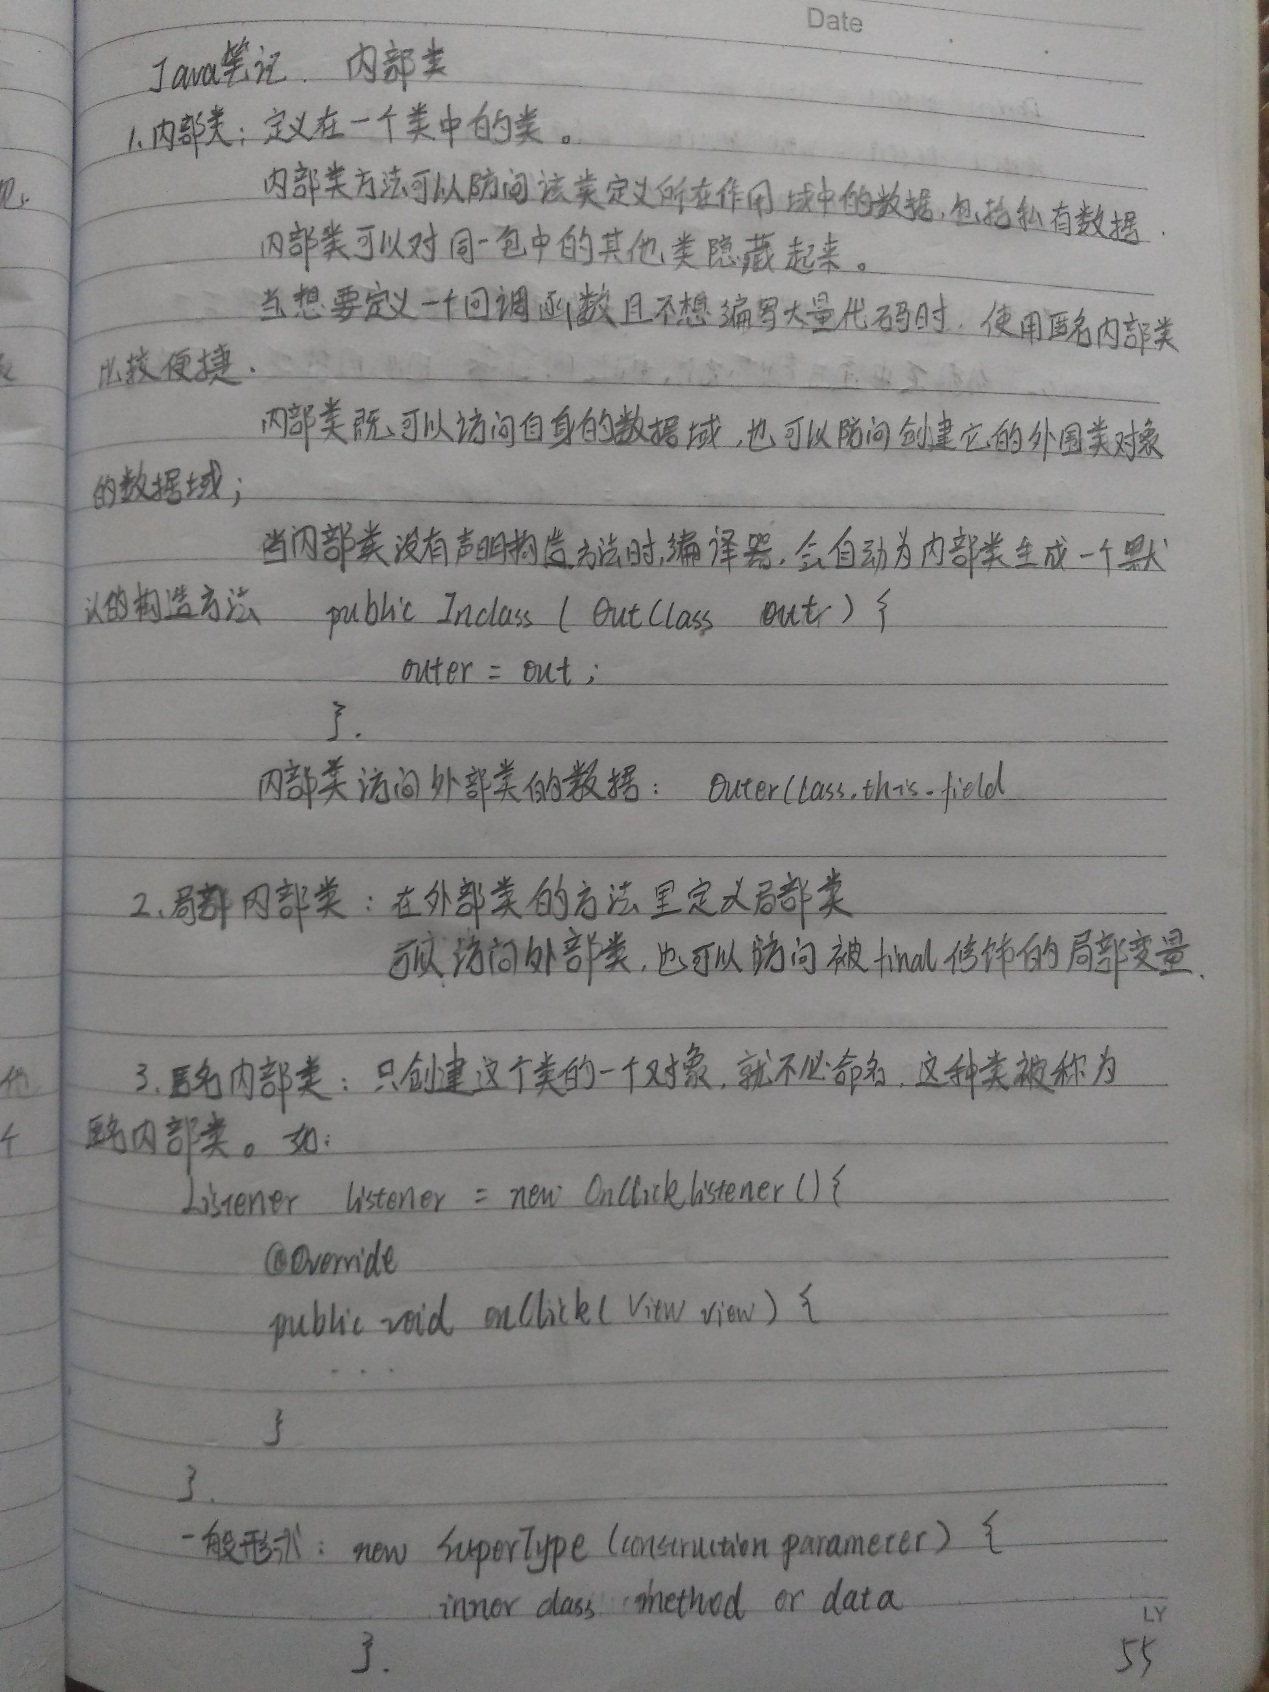 Date
Java笔记. 内部类
1.内部类：定义在一个类中的类。
内部类方法可以访问该类定义所在作用域中的数据,包括私有数据.
内部类可以对同一包中的其他类隐藏起来。
当想要定义一个回调函数且不想编写大量代码时.使用匿名内部类
比较便捷.
内部类既可以访问自身的数据域,也可以访问创建它的外围类对象
的数据域;
当内部类没有声明构造方法时,编译器,会自动为内部类生成一个默
认的构造方法 public Inclass ( OutClass outr) {
outer = out;
}.
内部类访问外部类的数据： OuterClass.this.field
2.局部内部类：在外部类的方法里定义局部类
可以访问外部类,也可以访问被final修饰的局部变量.
3.匿名内部类：只创建这个类的一个对象,就不必命名.这种类被称为
匿名内部类。如:
Listener listener = new OnClickListener(){
@Override
public void onClick( View view) {
...
}
}.
一般形式: new SuperType (construction parameter) {
inner class method or data
}.
LY
55
他
个